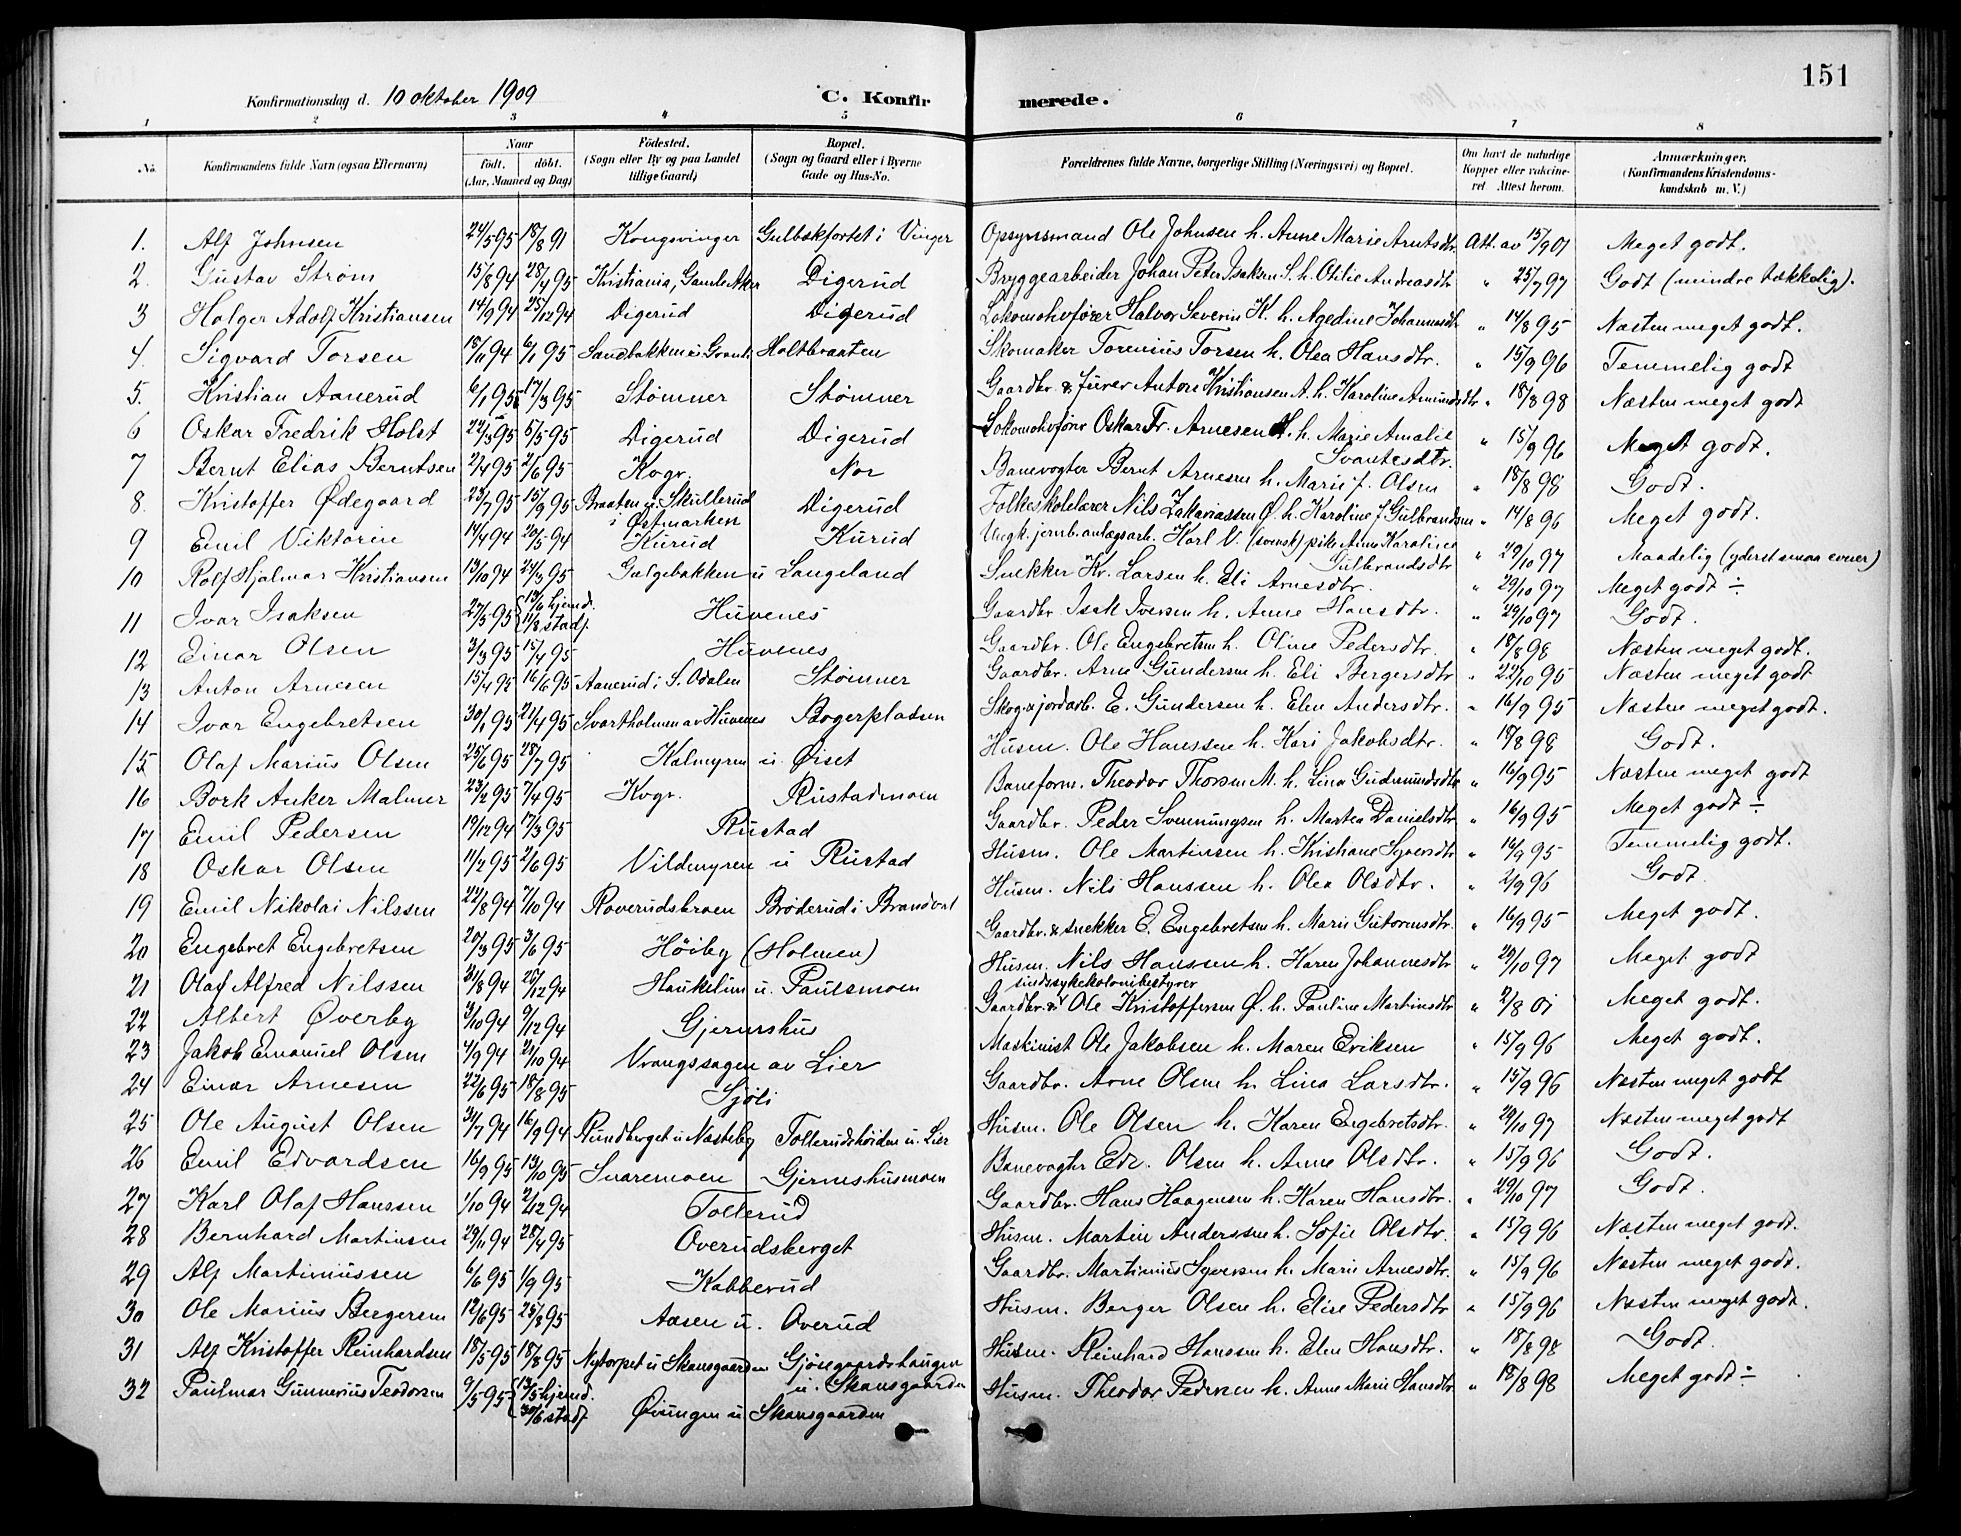 151
Konfirmationsdag d. 10 oktober 1909 C. Konfirmerede.
1 2 3 4 5 6 7 8
No. Konfirmandens fulde Navn (ogsaa Efternavn) Naar født. døbt. (Aar, Maaned og Dag) Fødested. (Sogn eller By og paa Landet tillige Gaard) Bopæl. (Sogn og Gaard eller i Byerne Gade og Hus-No. Forældrenes fulde Navne, borgerlige Stilling (Næringsvei) og Bopæl. Om havt de naturlige Kopper eller vakcineret. Attest herom. Anmærkninger. (Konfirmandens Kristendomskundskab m. V.)
1. Alf Johnsen 24/5 95 18/8 91 Kongsvinger Gulbækfortet i Vinger Opsynsmand Ole Johnsen h. Anne Marie Arntsdtr. Att. av 15/9 01 Meget godt.
2. Gustav Strøm 15/8 94 28/4 95 Kristiania, Gamle Aker Digerud Bryggearbeider Johan Peter Isaksen S. h. Otilie Andreasdtr " 25/7 97 Godt (mindre tækkelig).
3 Holger Adolf Kristiansen 14/9 94 25/12 94 Digerud Digerud Lokomotivfører Halvor Severin K. h. Agedine Johannesdtr " 14/8 95 Næsten meget godt.
4. Sigvard Torsen 18/11 94 6/1 95 Sandbakken i Grant Holtbraaten Skomaker Torenius Torsen h. Olea Hansdtr. " 15/9 96 Temmelig godt
5. Kristian Aanerud 6/1 95 17/3 95 Stømner Stømner Gaardbr. & furer Anton Kristiansen A. h. Karoline Amundsdtr " 18/8 98 Næsten meget godt
6 Oskar Fredrik Holst 22/3 95 5/5 95 Digerud Digerud Lokomotivfører Oskar Fr. Arnesen H. h. Marie Amalie Svantesdtr. " 15/9 96 Meget godt.
7 Bernt Elias Berntsen 2/4 95 2/6 95 Kogr. Nor Banevogter Bernt Arnesen h. Marie f. Olsen " 18/8 98 Godt.
8. Kristoffer Ødegaard 23/7 95 15/9 95 Braaten u. Skullerud i Østmarken Digerud Folkeskolelærer Nils Zakariassen Ø. h. Karoline f. Gulbrandsen " 14/8 96 Meget godt.
9 Emil Viktorin 14/4 94 20/5 94 Kurud Kurud Ungk. jernb.anlægsarb. Karl V. (svensk) pike Anne Karoline Gulbrandsdtr " 29/10 97 Maadelig (yderst smaa evner)
10 Rolf Hjalmar Kristiansen 13/10 94 24/3 95 Galgebakken u Langeland Snekker Kr. Larsen h. Eli Arnesdtr. " 29/10 97 Meget godt ÷
11 Ivar Isaksen 27/5 95 {13/6 hjemd. 11/8 stadf. Huvenes Gaardbr. Isak Iversen h. Anne Hansdtr. " 29/10 97 Godt.
12 Einar Olsen 3/3 95 15/4 95 Huvenes Gaardbr. Ole Engebretsen h. Oline Pedersdtr. " 18/8 98 Næsten meget godt.
13 Anton Arnesen 15/4 95 16/6 95 Aanerud i S. Odalen Stømner Gaardbr. Arne Gundersen h. Eli Bergersdtr " 22/10 95 Næsten meget godt
14 Ivar Engebretsen 30/1 95 21/4 95 Svartholmen av Huvenes Bogerpladsen Skog & jordarb. E. Gundersen h. Elen Andersdtr. " 16/9 95 Næsten meget godt.
15 Olaf Marius Olsen 25/6 95 28/7 95 Kalmyren u. Øiset Husm. Ole Hanssen h. Kari Jakobsdtr. " 18/8 98 Godt.
16 Bork Anker Malmer 23/2 95 7/4 95 Kogr. Rustadmoen Baneform. Theodor Thorsen M. h. Lina Gudmundsdtr " 16/9 95 Næsten meget godt
17 Emil Pedersen 19/12 94 17/3 95 Rustad Gaardbr. Peder Svennungsen h. Martea Danielsdtr " 16/9 95 Meget godt ÷
18 Oskar Olsen 11/2 95 2/6 95 Vildmyren u Rustad Husm. Ole Martinsen h. Kristiane Syversdtr " 16/9 95 Temmelig godt.
19 Emil Nikolai Nilssen 22/8 94 7/10 94 Roverudsbroen Brøderud i Brandval Husm. Nils Hanssen h. Olea Olsdtr. " 2/9 96 Godt
20 Engebret Engebretsen 20/3 95 3/6 95 Høiby (Holmen) Gaardbr. & snekker E. Engebretsen h. Marie Gutormsdtr. " 16/9 95 Meget godt.
21 Olaf Alfred Nilssen 31/8 94 26/12 94 Haukelien u. Paulsmoen Husm. Nils Hanssen h. Karen Johannesdtr " 29/10 97 Meget godt
22 Albert Øverby 3/10 94 9/12 94 Gjermshus Gaardbr. & sindssykekolonibestyrer Ole Kristoffersen Ø. h. Pauline Martinsdtr " 2/8 01 Meget godt.
23 Jakob Emanuel Olsen 4/9 94 21/10 94 Vrangssagen av Lier Maskinist Ole Jakobsen h. Maren Eriksen " 15/9 96 Meget godt.
24 Einar Arnesen 22/6 95 18/8 95 Sjøli Gaardbr. Arne Olsen h. Lina Larsdtr. " 15/9 96 Næsten meget godt
25 Ole August Olsen 31/7 94 16/9 94 Rundberget u Næsteby Tollerudshøiden u. Lier Husm. Ole Olsen h. Karen Engebretsdtr. " 29/10 97 Næsten meget godt
26 Emil Edvardsen 16/9 95 13/10 95 Snaremoen Gjermshusmoen Banevogter Edv. Olsen h. Anne Olsdtr. " 15/9 96 Godt.
27 Karl Olaf Hanssen 1/10 94 2/12 94 Tollerud Gaardbr. Hans Haagensen h. Karen Hansdtr. " 29/10 97 Godt.
28 Bernhard Martinsen 29/11 94 28/4 95 Overudsberget Husm. Martin Anderssen h. Sofie Olsdtr. " 15/9 96 Næsten meget godt.
29 Alf Martiniussen 6/6 95 1/9 95 Kabberud Gaardbr. Martinius Syversen h. Marie Arnesdtr. " 15/9 96 Næsten meget godt.
30 Ole Marius Bergersen 12/6 95 25/8 95 Aasen u. Overud Husm. Berger Olsen h. Elise Pedersdtr " 15/9 96 Næsten meget godt.
31 Alf Kristoffer Reinhardsen 18/5 95 18/8 95 Nytorpet u Skansgaarden Gjøsegaardshaugen u. Skansgaarden Husm. Reinhard Hanssen h. Elen Hansdtr. " 18/8 98 Godt.
32 Paulmar Gunnerius Teodorsen 9/5 95 {13/5 hjemd. 30/6 stadf Øiungen u Skansgaarden Husm. Theodor Pedersen h. Anne Marie Hansdtr " 18/8 98 Meget godt ÷